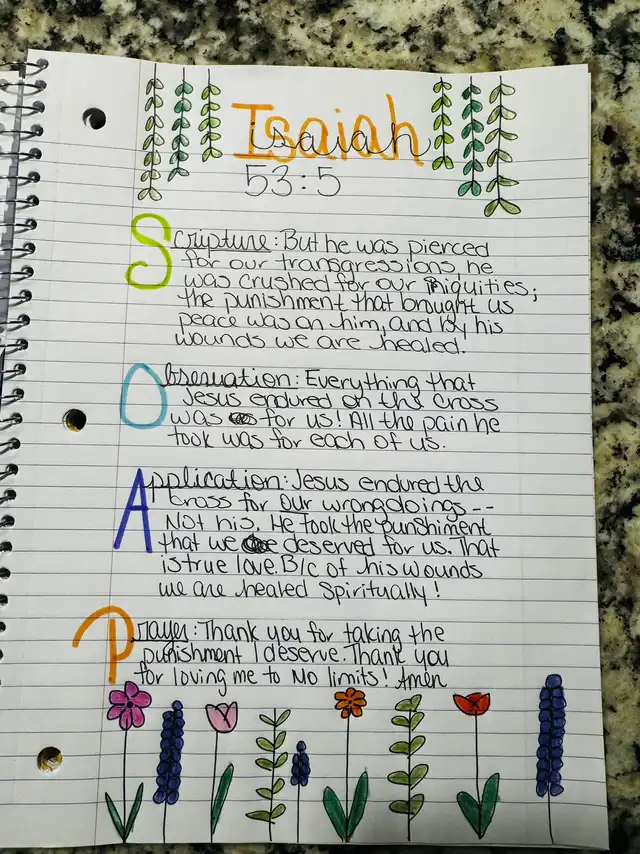 Isaiah
isaiah
53:5
Scripture: But he was pierced
for our transgressions, he
was crushed for our iniquities;
the punishment that brought us
peace was on him, and by his
wounds we are healed.
Observation: Everything that
Jesus endured on the cross
was for us! All the pain he
took was for each of us.
Application: Jesus endured the
cross for our wrongdoings --
Not his. He took the punshiment
that we deserved for us. That
is true love. B/c of his wounds
we are healed spiritually!
Prayer: Thank you for taking the
punishment I deserve. Thank you
for loving me to No limits! Amen